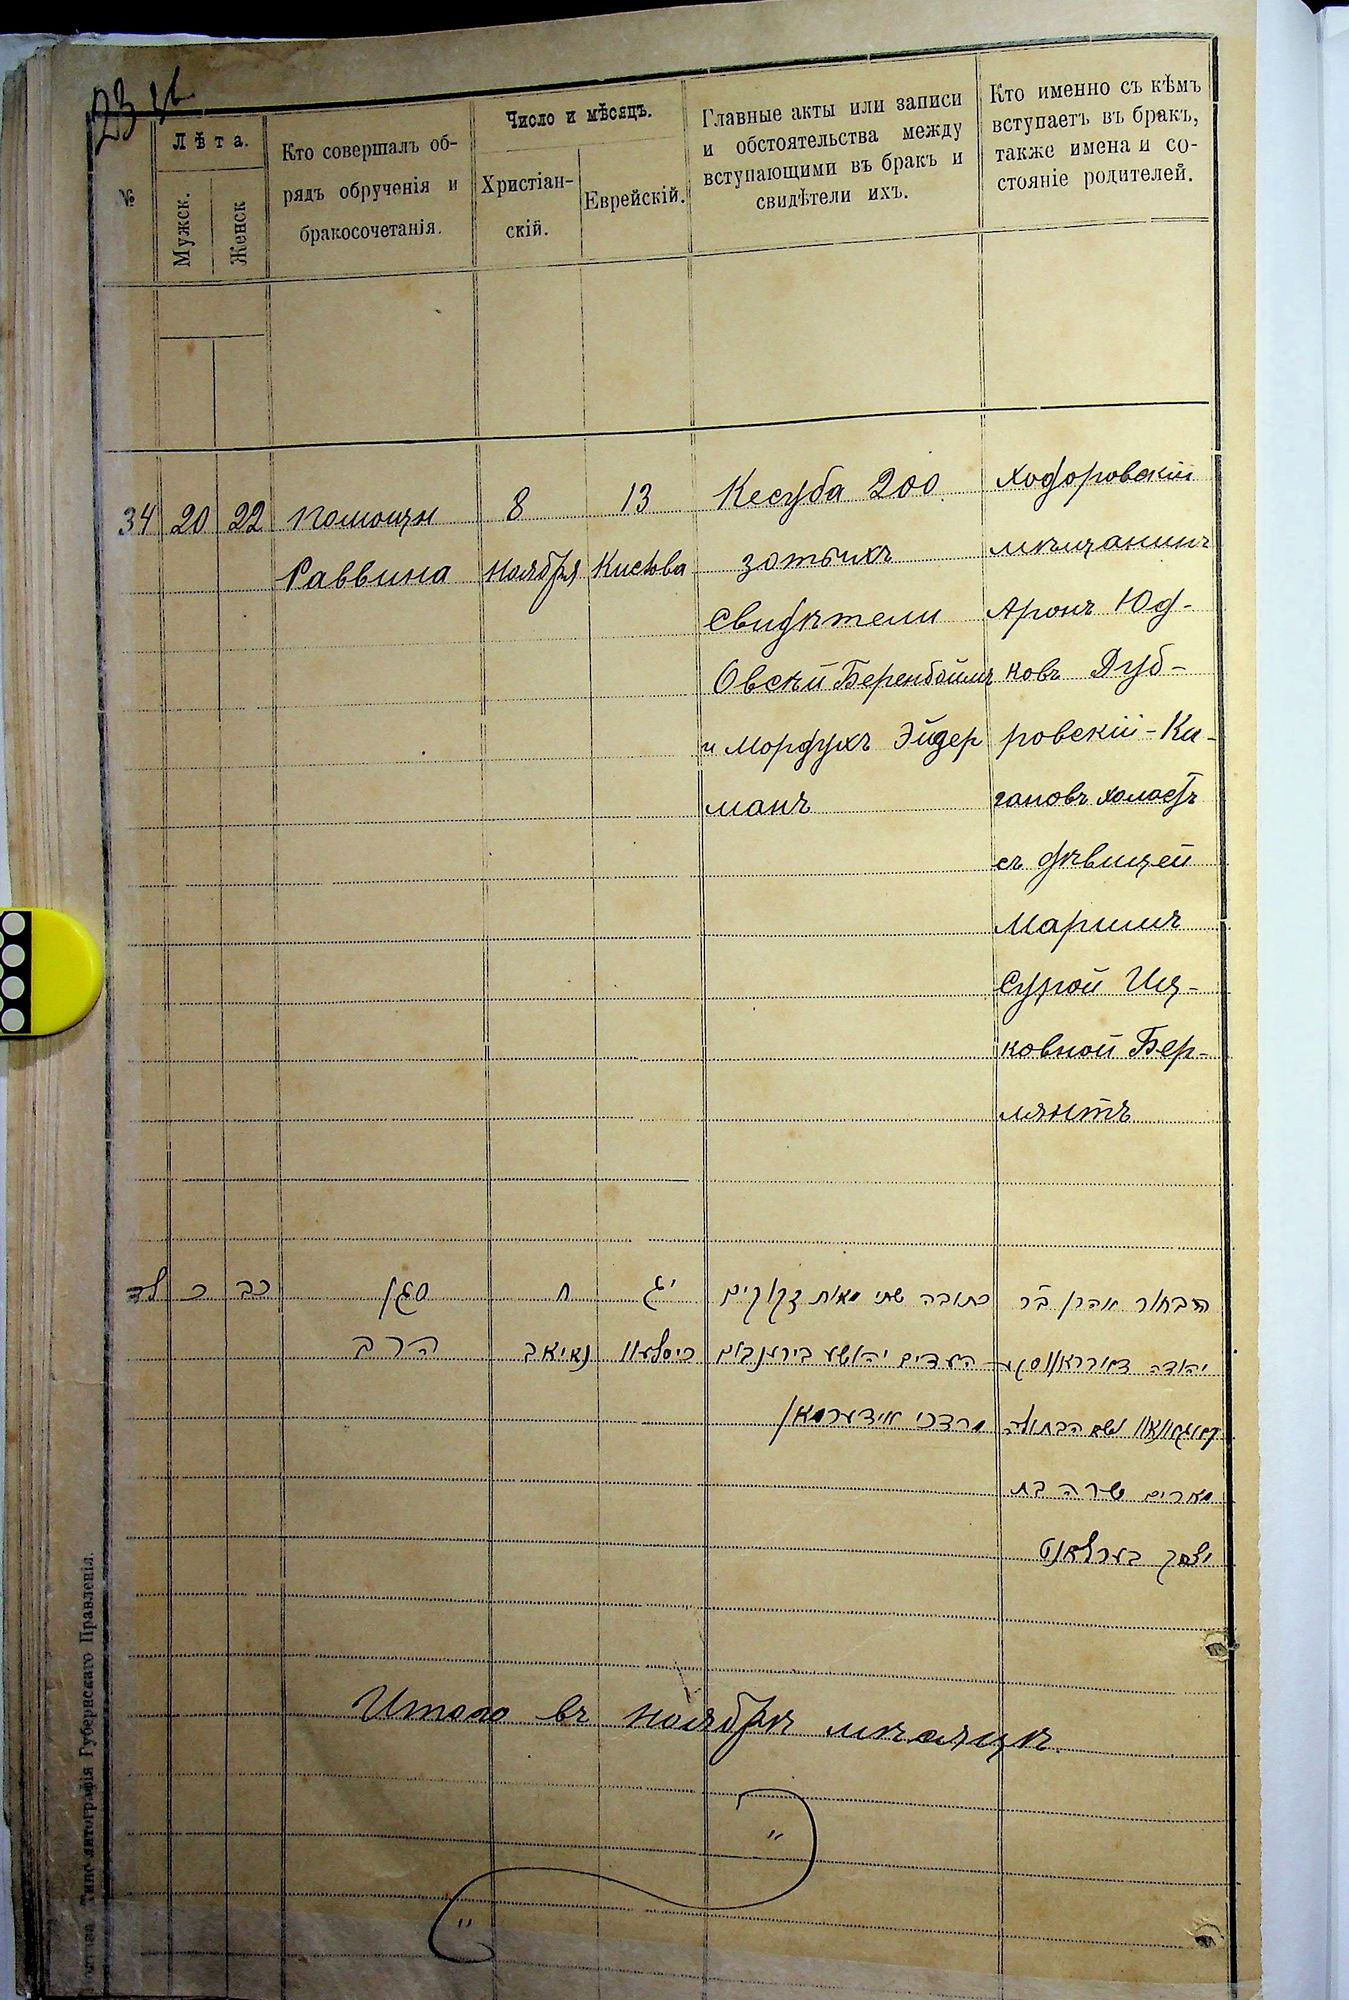 23
№
Лѣта.
Мужск.
Женск
Кто совершалъ об-
рядъ обрученія и
бракосочетанія.
Число и мѣсяцъ.
Христіан-
скій.
Еврейскій.
Главные акты или записи
и обстоятельства между
вступающими въ бракъ и
свидѣтели ихъ.
Кто именно съ кѣмъ
вступаетъ въ бракъ,
также имена и со-
стояніе родителей.
34 20 22
Помощн
Раввина
8
ноября
13
Кислева
Кесуба 200
зотыхъ
Свидѣтели
Овсѣй Беренбоймъ
и Мордухъ Эйдер
манъ
Ходоровскій
мѣщанинъ
Аронъ Юд-
ковъ Дуб-
ровскій-Ка-
гановъ холостъ
съ дѣвицей
Маріимъ
Сурой Иц-
ковной Бер-
лянтъ
לד כ כב
סגן
הרב
ח
נאיאב
יג
כיסלעוו
כתובה שתי מאות זקוקים
העדים יהושע בירענבוים
מרדכי איידערמאן
הבחור אהרן ב"ר
יהודה
הבתולה
מארים שרה בת
יצחק בערלאנט
Итого въ ноябрѣ мѣсяцѣ
Типо-литографія Губернскаго Правленія.